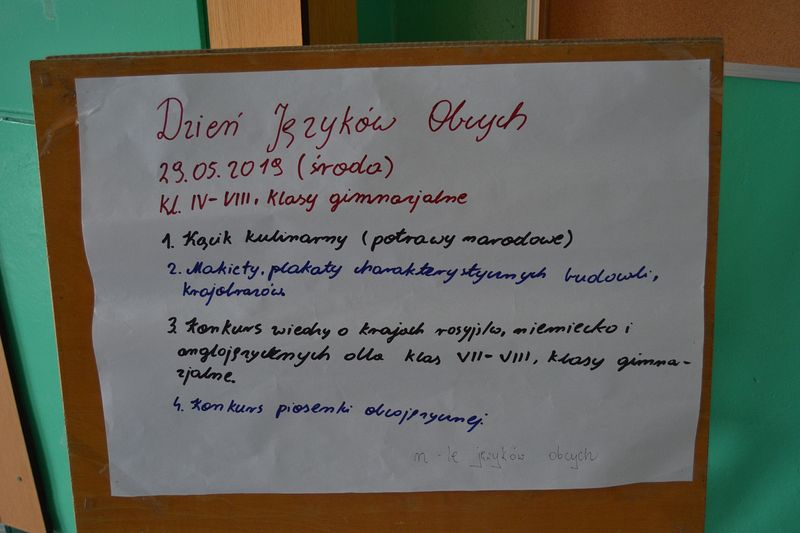 Dzień Języków Obcych
29.05.2019 (środa)
kl. IV-VIII, klasy gimnazjalne
1. Kącik kulinarny (potrawy narodowe)
2. Makiety, plakaty charakterystycznych budowli,
krajobrazów.
3. Konkurs wiedzy o krajach rosyjsko, niemiecko i
anglojęzycznych dla klas VII-VIII, klasy gimna-
zjalne.
4. Konkurs piosenki obcojęzycznej.
n-le języków obcych